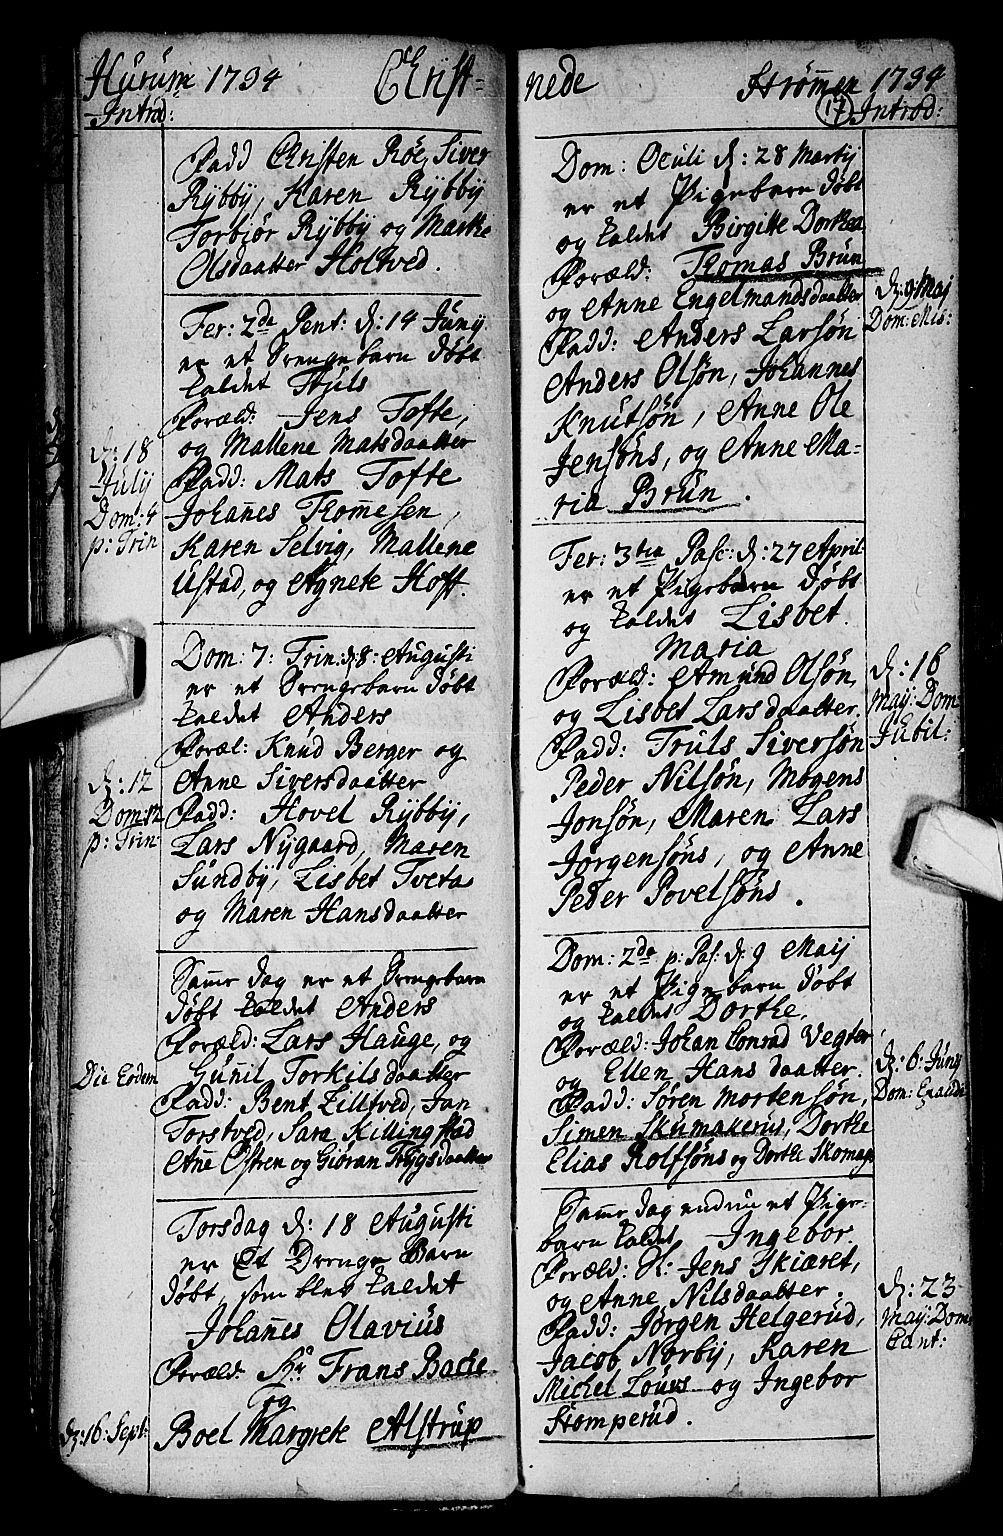 Hurum 1734 Christ-
Introd:
Fadd Christen Röe, Siver
Rÿbbÿ, Karen Rÿbbÿ
Torbiör Rÿbbÿ og Marthe
Olsdaatter Holtved.
Fer: 2da Pent: d: 14 Junij
er et Drengebarn døbt
kaldet Thiuls
Foræld: Jens Tofte,
og Mallene Matsdaatter
Fadd: Mats Tofte
Johannes Thommesen,
Karen Selvig, Mallene
Ustad, og Agnete Hoff.
d: 18
Julij
Dom: 4
p: Trin
Dom: 7: Trin: d: 8: Augusti
er et Drengebarn døbt
kaldet Anders
Foræl: Knud Berger og
Anne Siversdaatter
Fadd: Hovel Rÿbbÿ,
Lars Nÿgaard, Maren
Sundbÿ, Lisbet Tveta
og Maren Hansdaatter
d: 12
Dom: 12
p: Trin
Samme dag er et Drengebarn
døbt kaldet Anders
Foræld: Lars Hauge, og
Gunil Torkilsdaatter
Fadd: Bent Lilltved, Jan
Torstved, Sara Killingstad
Anne Østren og Giöran Trÿgsdaatter
Die Eodem
Torsdag d: 18 Augusti
er Et Drenge Barn
døbt, som blev kaldet
Johannes Olavius
Foræld: Hr Frans Bache
og
Boel Margrete Alstrup
d: 16 Sept:
nede Strømmen 1734
17 Introd:
Dom: Oculi d: 28 Martij
er et Pigebarn døbt
og kaldet Birgitte Dorthea
Foræld: Thomas Brun
og Anne Engelmandsdaatter
Fadd: Anders Larsøn
Anders Olsøn, Johannes
Knutsøn, Anne Ole
Jensøns, og Anne Ma-
ria Brun.
d: 9 Maj
Dom: Mis:
Fer: 3tia Pasc: d: 27 April
er et Pigebarn døbt
og kaldet Lisbet
Maria
Foræld: Amund Olsøn,
og Lisbet Larsdaatter
Fadd: Truls Siversøn
Peder Nilsøn, Mogens
Jonsøn, Maren Lars
Jörgensøns, og Anne
Peder Povelsøns.
d: 16
Maÿ: Dom
Jubil:
Dom: 2da p: Pas: d: 9 Maij
er et Pigebarn døbt
og kaldet Dorthe,
Foræld: Johan Conrad Vegter
og Ellen Hansdaatter
Fadd: Sören Mortensøn,
Simen Skumakerus, Dorthe
Elias Rolfsøns og Dorthe Skomag
d: 6: Junij
Dom: Exaudi
Samme dag endnu et Pige-
barn kaldet Ingebor
Foræld: Jens Skiæret,
og Anne Nilsdaatter.
Fadd: Jørgen Helgerud,
Jacob Norbÿ, Karen
Michel Lours og Ingebor
Stomperud.
d: 23
Maÿ: Dom
Cant: